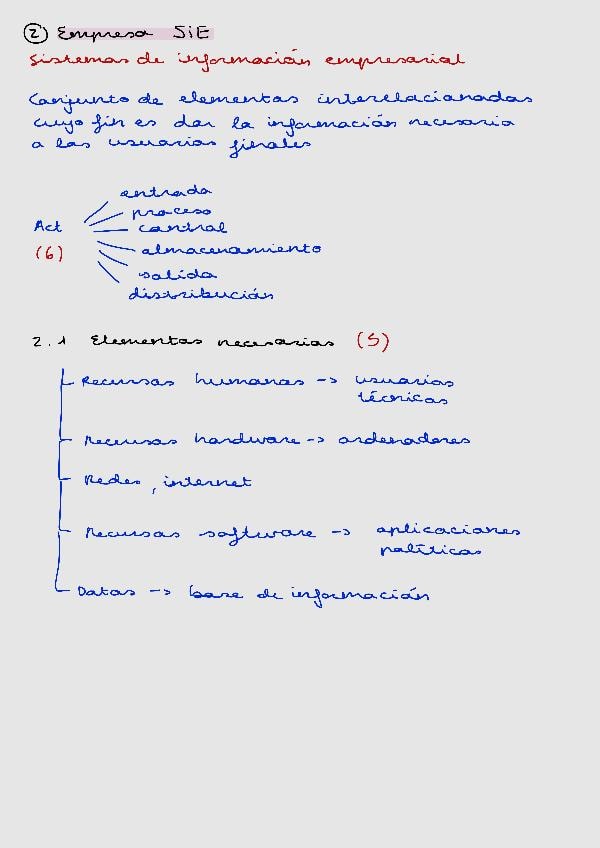 2 Empresa SiE
Sistemas de información empresarial
Conjunto de elementos interrelacionados
cuyo fin es dar la información necesaria
a los usuarios finales
entrada
proceso
Act
control
(6)
almacenamiento
salida
distribución
2.1 Elementos necesarios (5)
Recursos humanos -> usuarios
técnicos
Recursos hardware -> ordenadores
Redes, internet
Recursos software -> aplicaciones
políticas
Datos -> base de información